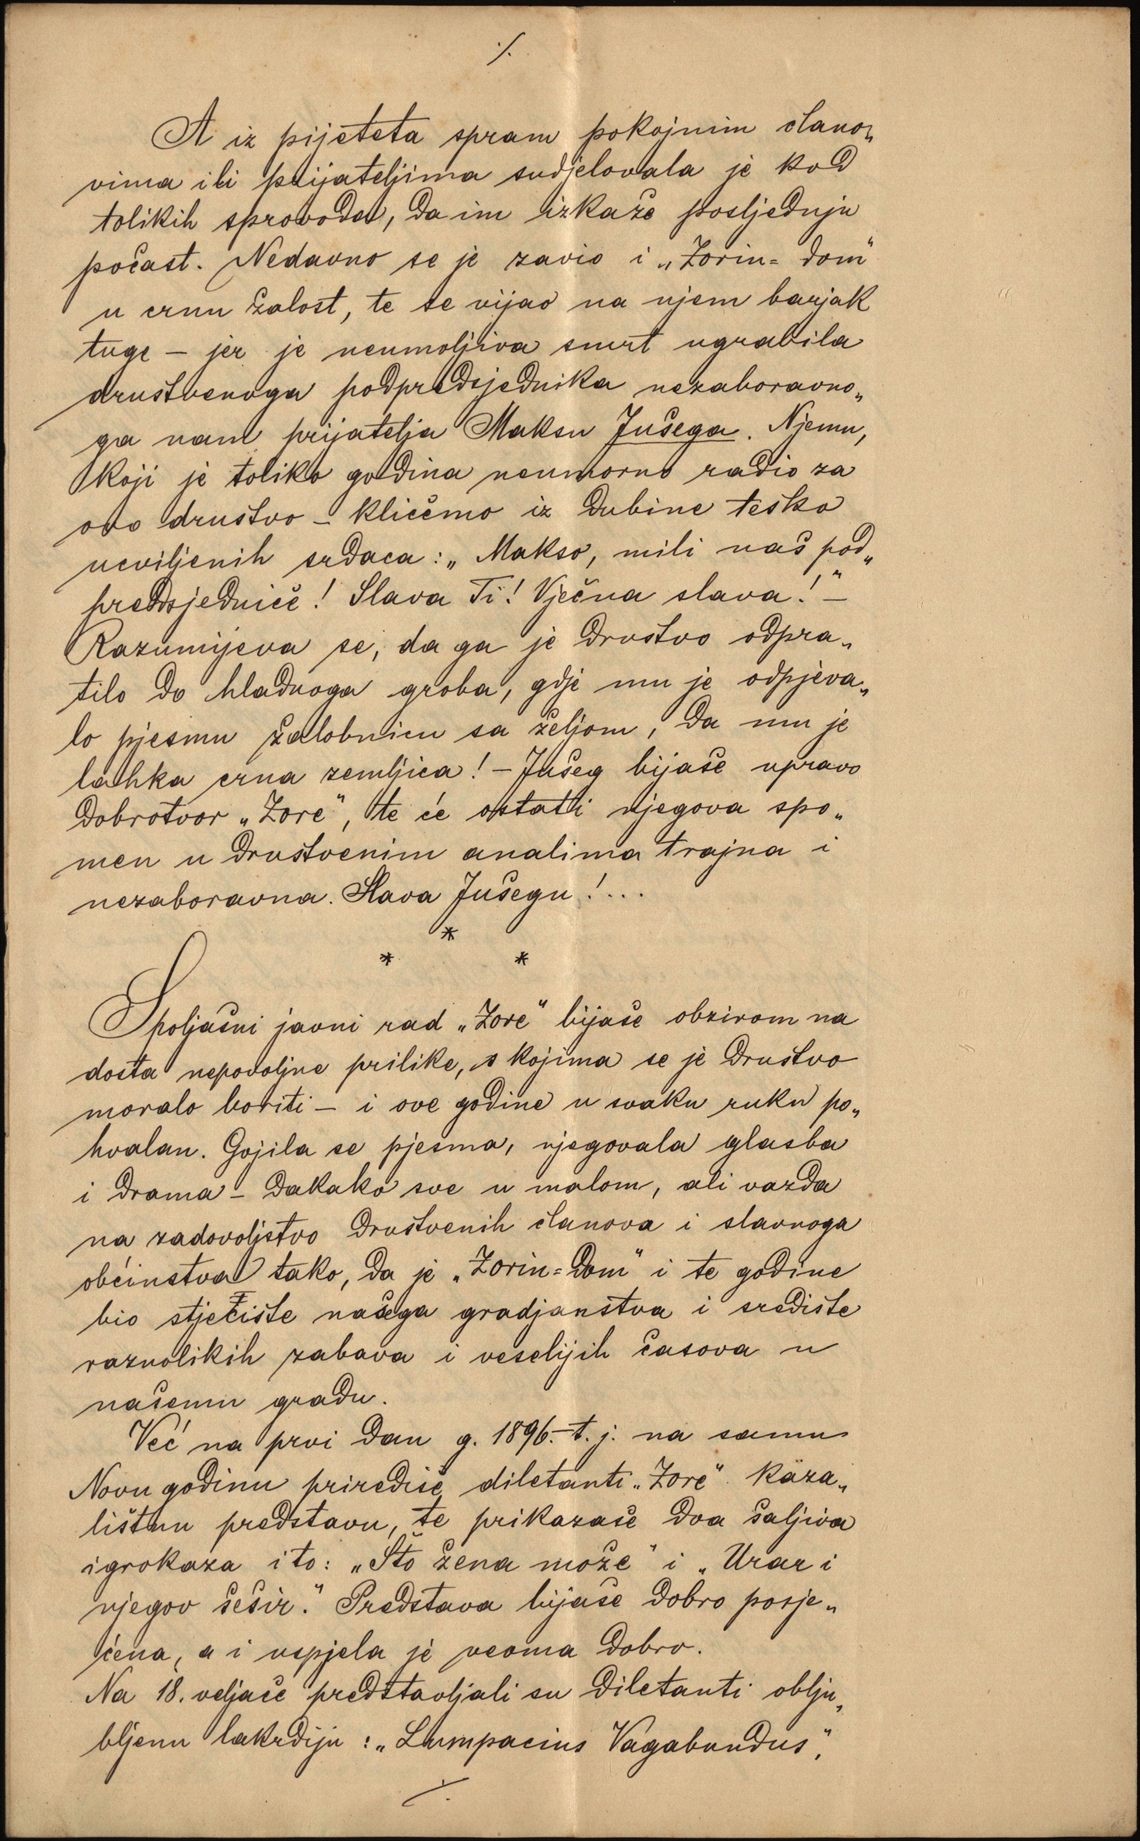 ·/.
A iz pijeteta spram pokojnim člano„
vima ili prijateljima sudjelovala je kod
tolikih sprovoda, da im izkaže posljednju
počast. Nedavno se je zavio i „Zorin=dom"
u crnu žalost, te se vijao na njem barjak
tuge – jer je neumoljiva smrt ugrabila
društvenoga podpredsjednika nezaboravno„
ga nam prijatelja Maksu Jušega. Njemu,
koji je toliko godina neumorno radio za
ovo društvo – kličemo iz dubine teško
ucviljenih srdaca: „Makso, mili naš pod„
predsjedniče! Slava Ti! Vječna slava!" –
Razumijeva se, da ga je društvo odpra„
tilo do hladnoga groba, gdje mu je odpjeva„
lo pjesmu žalobnicu sa željom, da mu je
lahka crna zemljica! – Jušeg bijaše upravo
dobrotvor „Zore", te će ostati njegova spo„
men u društvenim analima trajna i
nezaboravna. Slava Jušegu!...
* * *
Spoljašni javni rad „Zore" bijaše obzirom na
dosta nepovoljne prilike, s kojima se je društvo
moralo boriti – i ove godine u svaku ruku po„
hvalan. Gojila se pjesma, njegovala glasba
i drama – dakako sve u malom, ali vazda
na zadovoljstvo društvenih članova i slavnoga
občinstva tako, da je „Zorin=dom" i te godine
bio stjecište našega gradjanstva i središte
raznolikih zabava i veselijih časova u
našemu gradu.
Već na prvi dan g. 1896. – t. j. na samu
Novu godinu prirediše diletanti „Zore" kaza„
lištnu predstavu, te prikazaše dva šaljiva
igrokaza i to: „Što žena može" i „Urar i
njegov šešir." Predstava bijaše dobro posje„
ćena, a i uspjela je veoma dobro.
Na 18. veljače predstavljali su diletanti oblju„
bljenu lakrdiju: „Lumpacius Vagabundus",
·/.